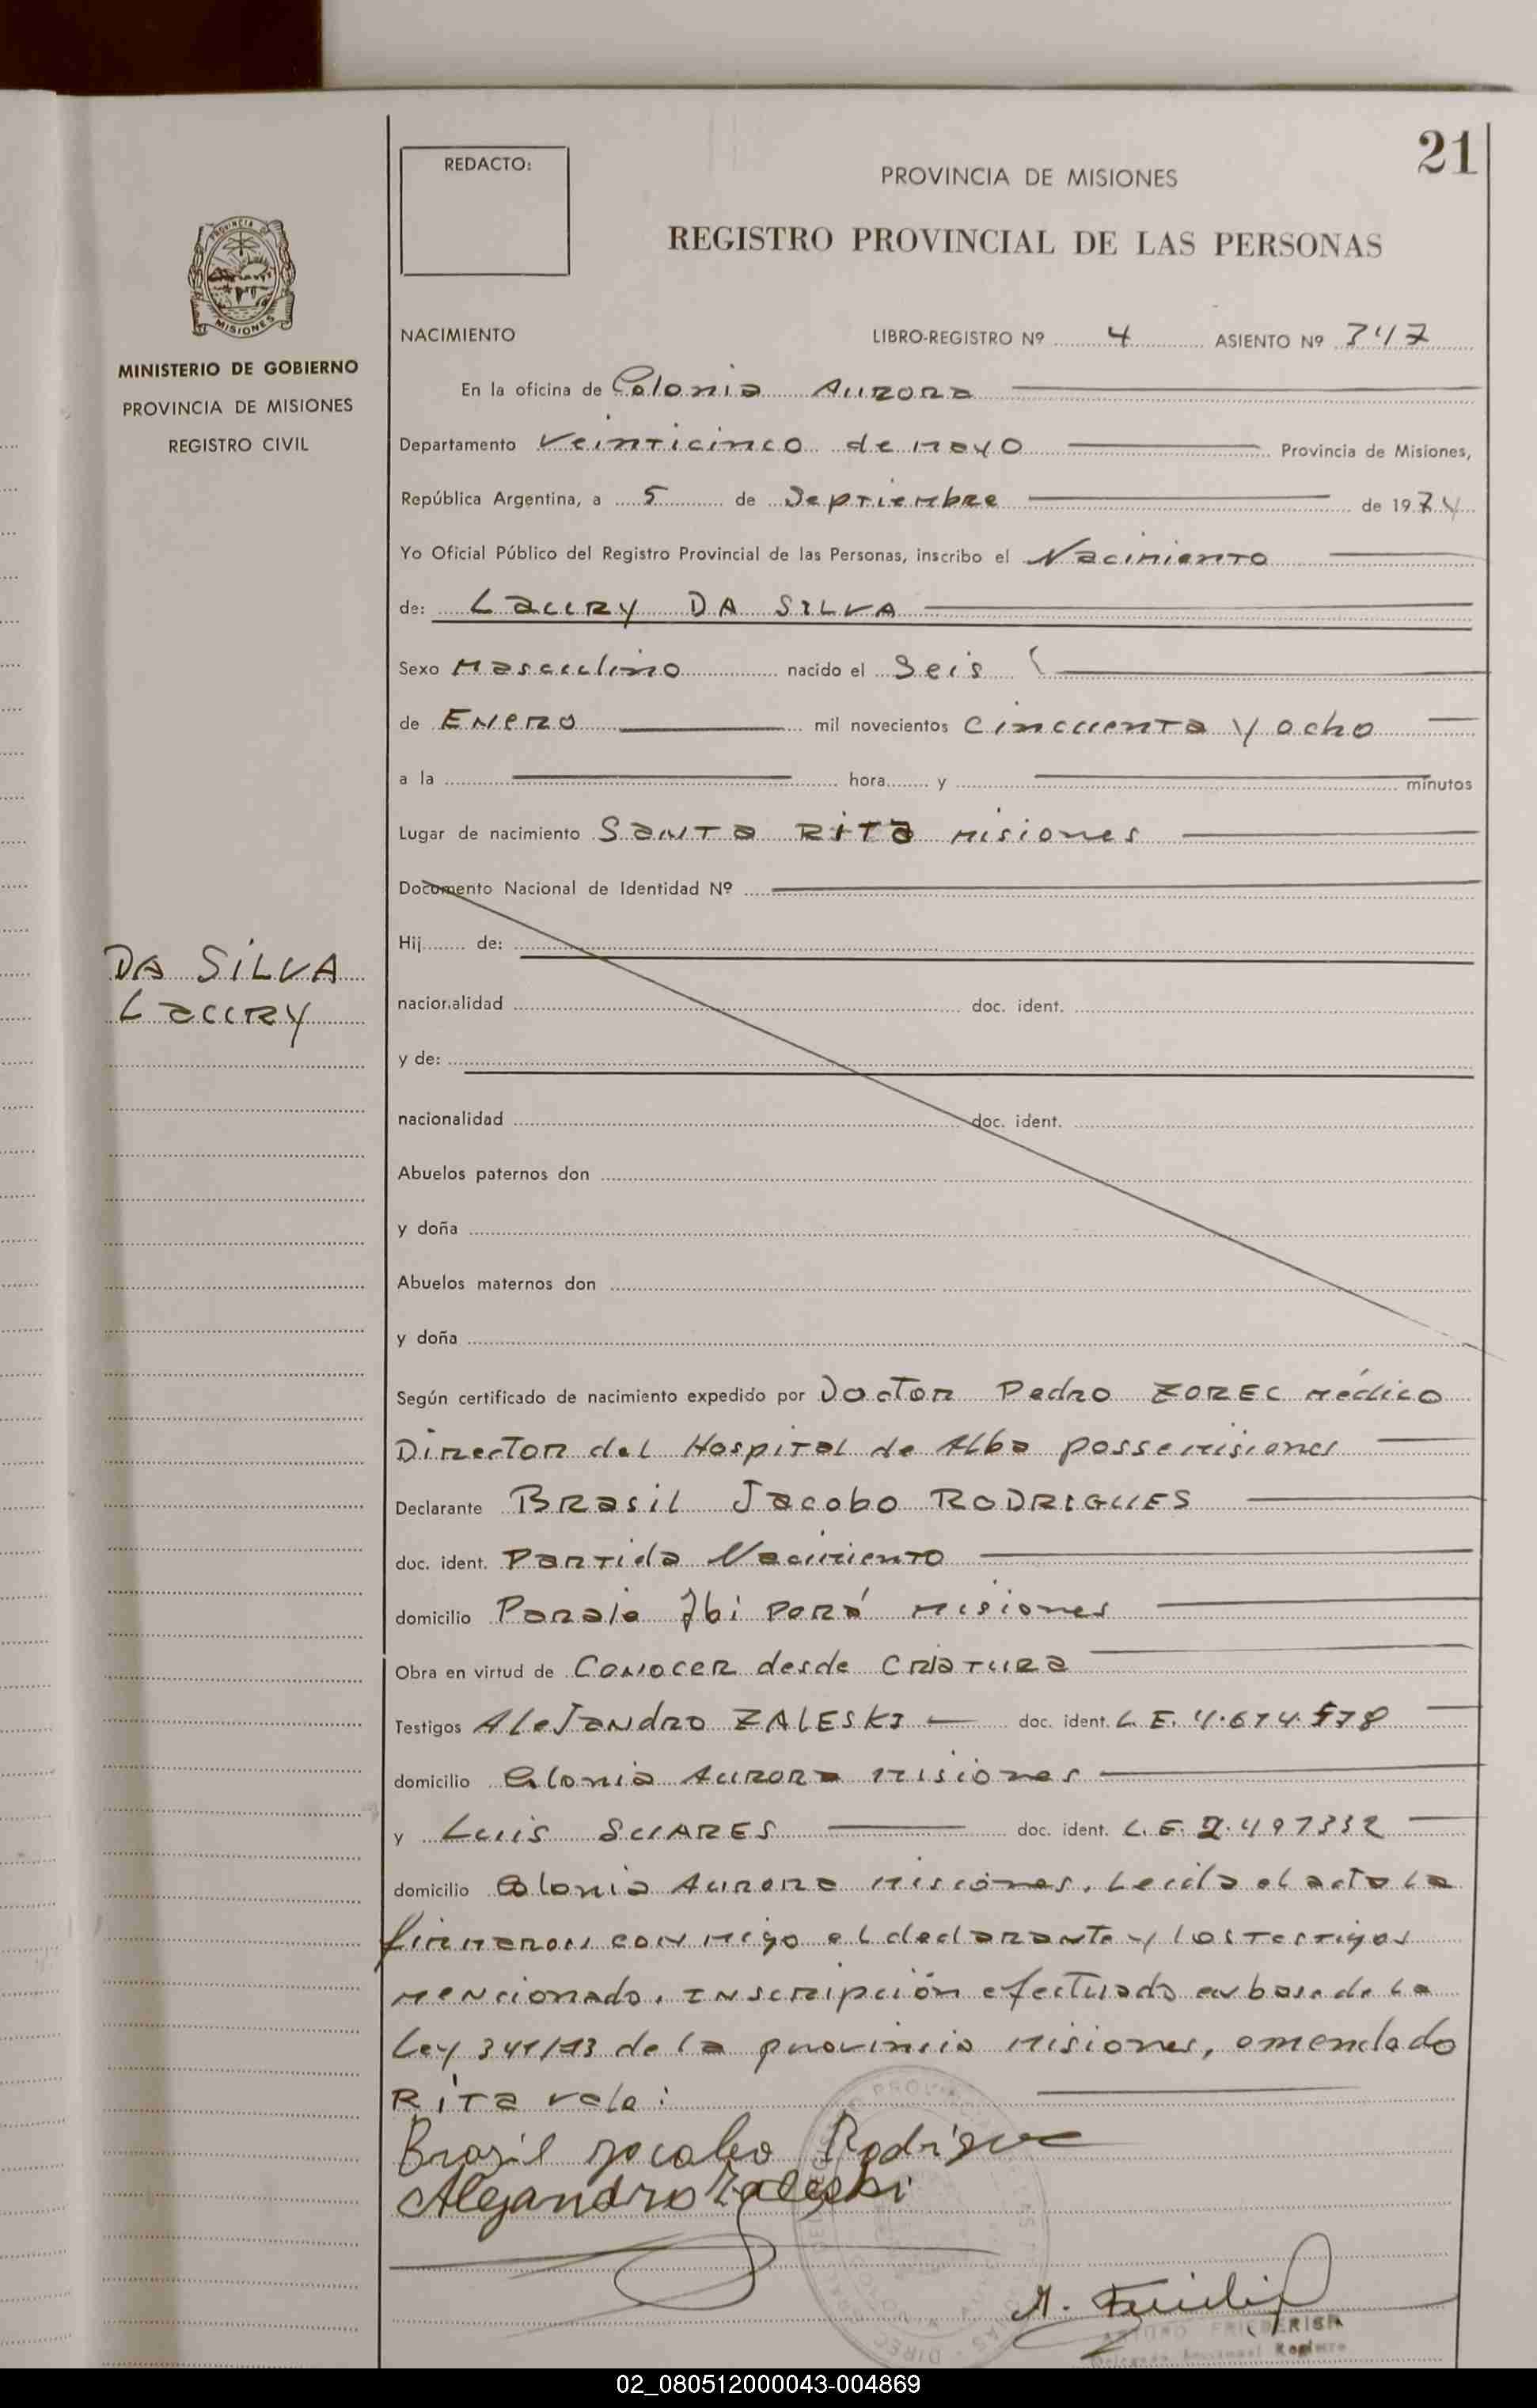 21
REDACTO:
PROVINCIA DE MISIONES
REGISTRO PROVINCIAL DE LAS PERSONAS
PROVINCIA D
MISIONES
MINISTERIO DE GOBIERNO
PROVINCIA DE MISIONES
REGISTRO CIVIL
NACIMIENTO LIBRO-REGISTRO Nº 4 ASIENTO Nº 747
En la oficina de Colonia Aurora
Departamento Veinticinco de mayo Provincia de Misiones,
República Argentina, a 5 de Septiembre de 1974
Yo Oficial Público del Registro Provincial de las Personas, inscribo el Nacimiento
de: Laury DA SILVA
Sexo Masculino nacido el Seis
de Enero mil novecientos cincuenta y ocho
a la hora y minutos
Lugar de nacimiento Santa Rita misiones
Documento Nacional de Identidad Nº
DA SILVA
Laury
Hij de:
nacionalidad doc. ident.
y de:
nacionalidad doc. ident.
Abuelos paternos don
y doña
Abuelos maternos don
y doña
Según certificado de nacimiento expedido por Doctor Pedro ZOREC médico
Director del Hospital de Alba posse misiones
Declarante Brasil Jacobo RODRIGUES
doc. ident. Partida Nacimiento
domicilio Paraje Ibi porá misiones
Obra en virtud de Conocer desde criatura
Testigos Alejandro ZALESKI doc. ident. L.E. 4.674.578
domicilio Colonia Aurora misiones
y Luis SUARES doc. ident. L.E. 2.497332
domicilio Colonia Aurora misiones. Leida el acta la
firmaron con migo el declarante y los testigos
mencionado. Inscripción efectuada en base de la
Ley 341/73 de la provincia misiones, emendado
Rita vale:
Brazil Jacobo Rodrigue
Alejandro Zaleski
02_080512000043-004869